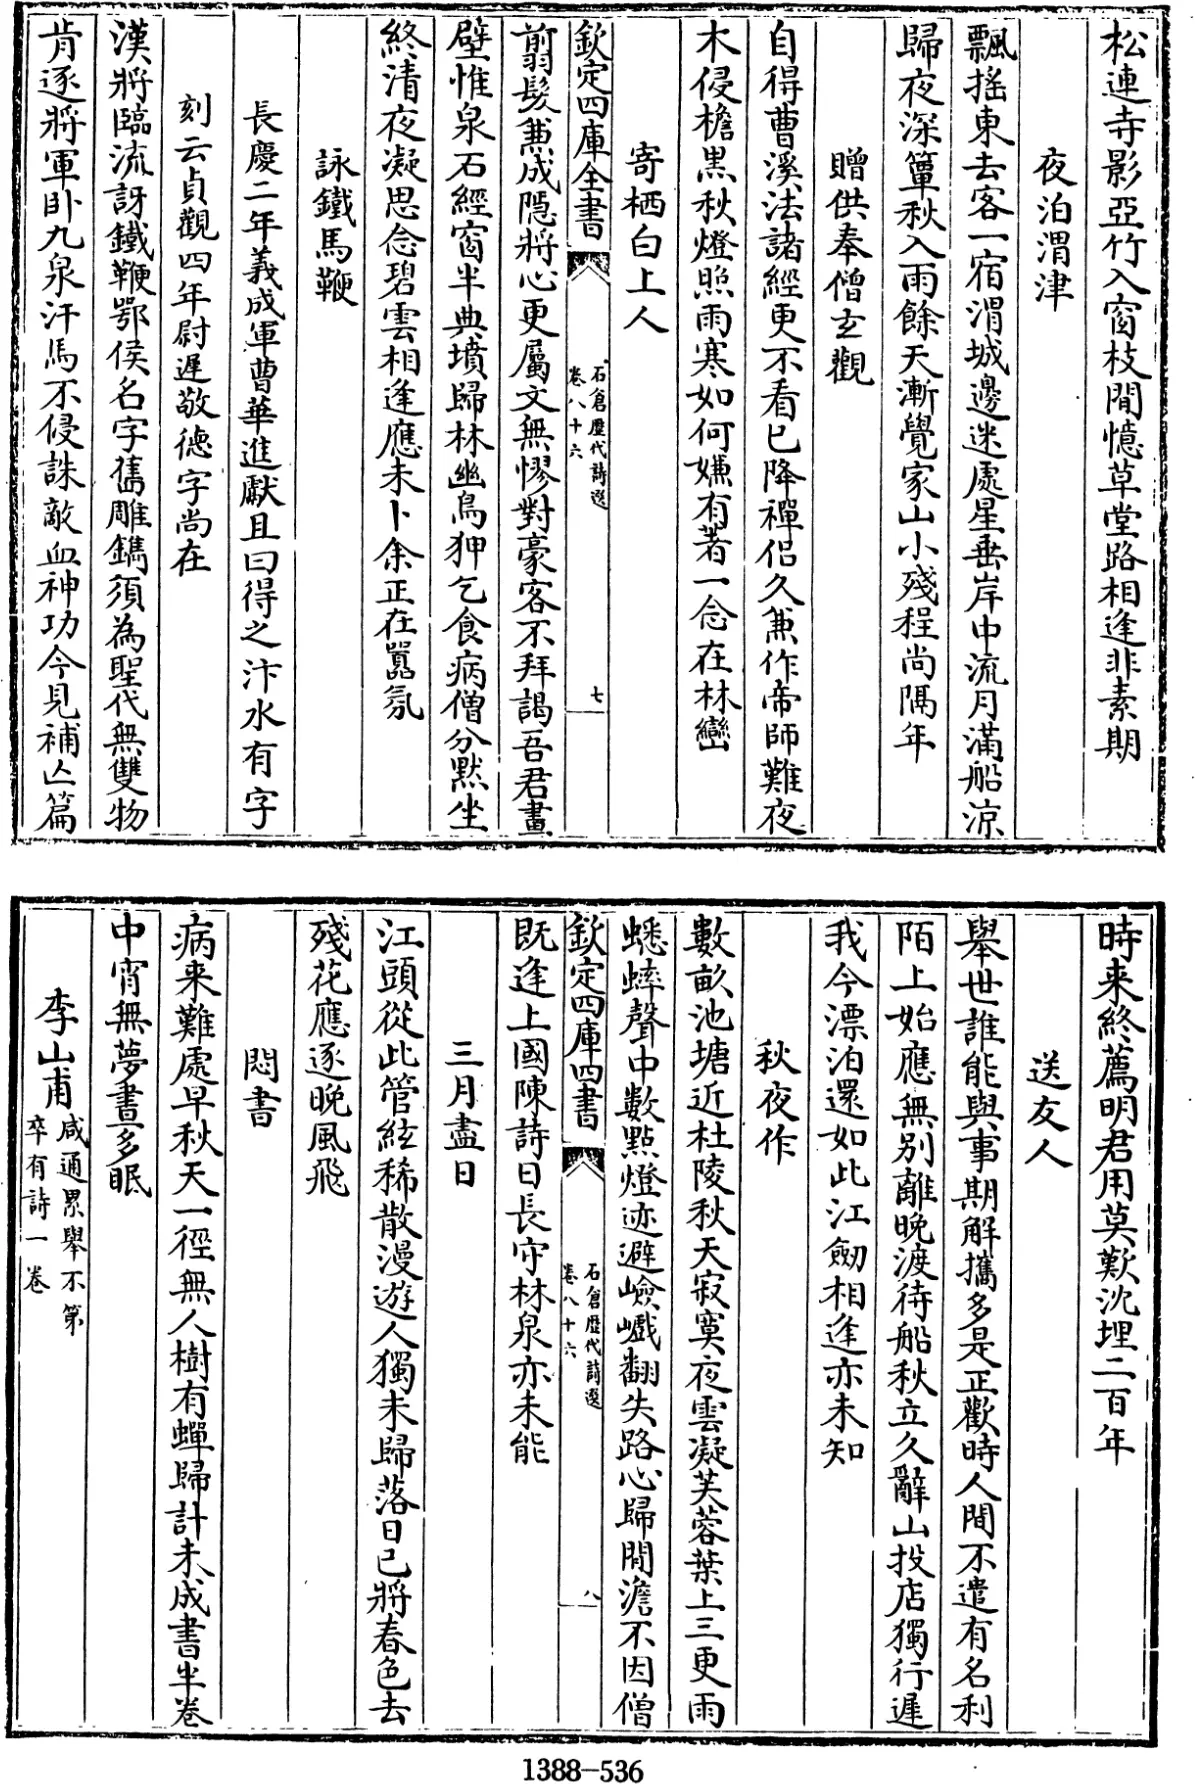 松連寺影亞竹入窗枝閒憶草堂路相逢非素期
夜泊渭津
飄搖東去客一宿渭城邊迷處星垂岸中流月滿船涼
歸夜深簟秋入雨餘天漸覺家山小殘程尚隔年
贈供奉僧玄觀
自得曹溪法諸經更不看已降禪侣久兼作帝師難夜
木侵檐黒秋燈照雨寒如何嫌有著一念在林巒
寄栖白上人
欽定四庫全書
石倉歴代詩選
卷八十六
七
翦髪兼成隠將心更屬文無憀對豪客不拜謁吾君畫
壁惟泉石經窗半典墳歸林幽鳥狎乞食病僧分黙坐
終清夜凝思念碧雲相逢應未卜余正在囂氛
詠鐵馬鞭
長慶二年義成軍曹華進獻且曰得之汴水有字
刻云貞觀四年尉遲敬德字尚在
漢將臨流訝鐵鞭鄂侯名字舊雕鐫須為聖代無雙物
肯逐將軍卧九泉汗馬不侵誅敵血神功今見補亡篇
時来終薦明君用莫歎沈埋二百年
送友人
舉世誰能與事期解攜多是正歡時人間不遣有名利
陌上始應無别離晩渡待船秋立久辭山投店獨行遲
我今漂泊還如此江劒相逢亦未知
秋夜作
數畝池塘近杜陵秋天寂寞夜雲凝芙蓉葉上三更雨
蟋蟀聲中數點燈迹避嶮巇翻失路心歸閒澹不因僧
欽定四庫四書
石倉歴代詩選
卷八十六
八
既逢上國陳詩日長守林泉亦未能
三月盡日
江頭從此管絃稀散漫遊人獨未歸落日已將春色去
殘花應逐晩風飛
悶書
病来難處早秋天一徑無人樹有蟬歸計未成書半卷
中宵無夢晝多眠
李山甫
咸通累舉不第
卒有詩一卷
1388-536